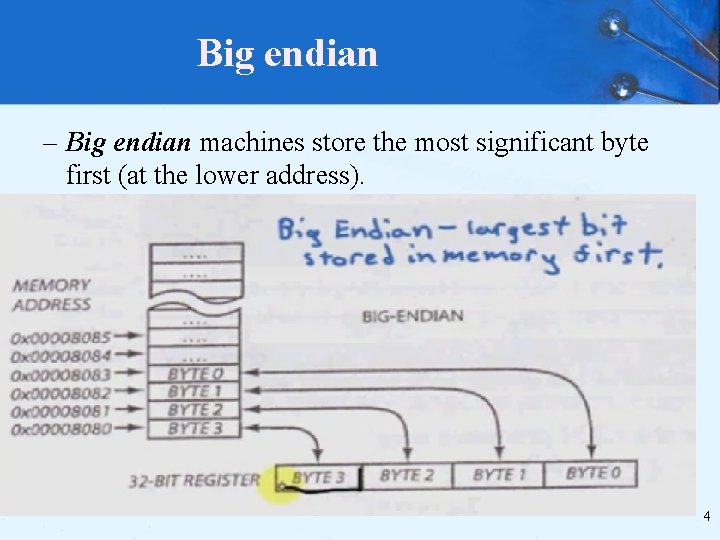 Big endian
– Big endian machines store the most significant byte
first (at the lower address).
Big Endian – largest bit
stored in memory first.
....
....
MEMORY
ADDRESS
BIG-ENDIAN
....
0x00008085 ....
0x00008084 ....
0x00008083 BYTE 0
0x00008082 BYTE 1
0x00008081 BYTE 2
0x00008080 BYTE 3
32-BIT REGISTER BYTE 3 BYTE 2 BYTE 1 BYTE 0
4